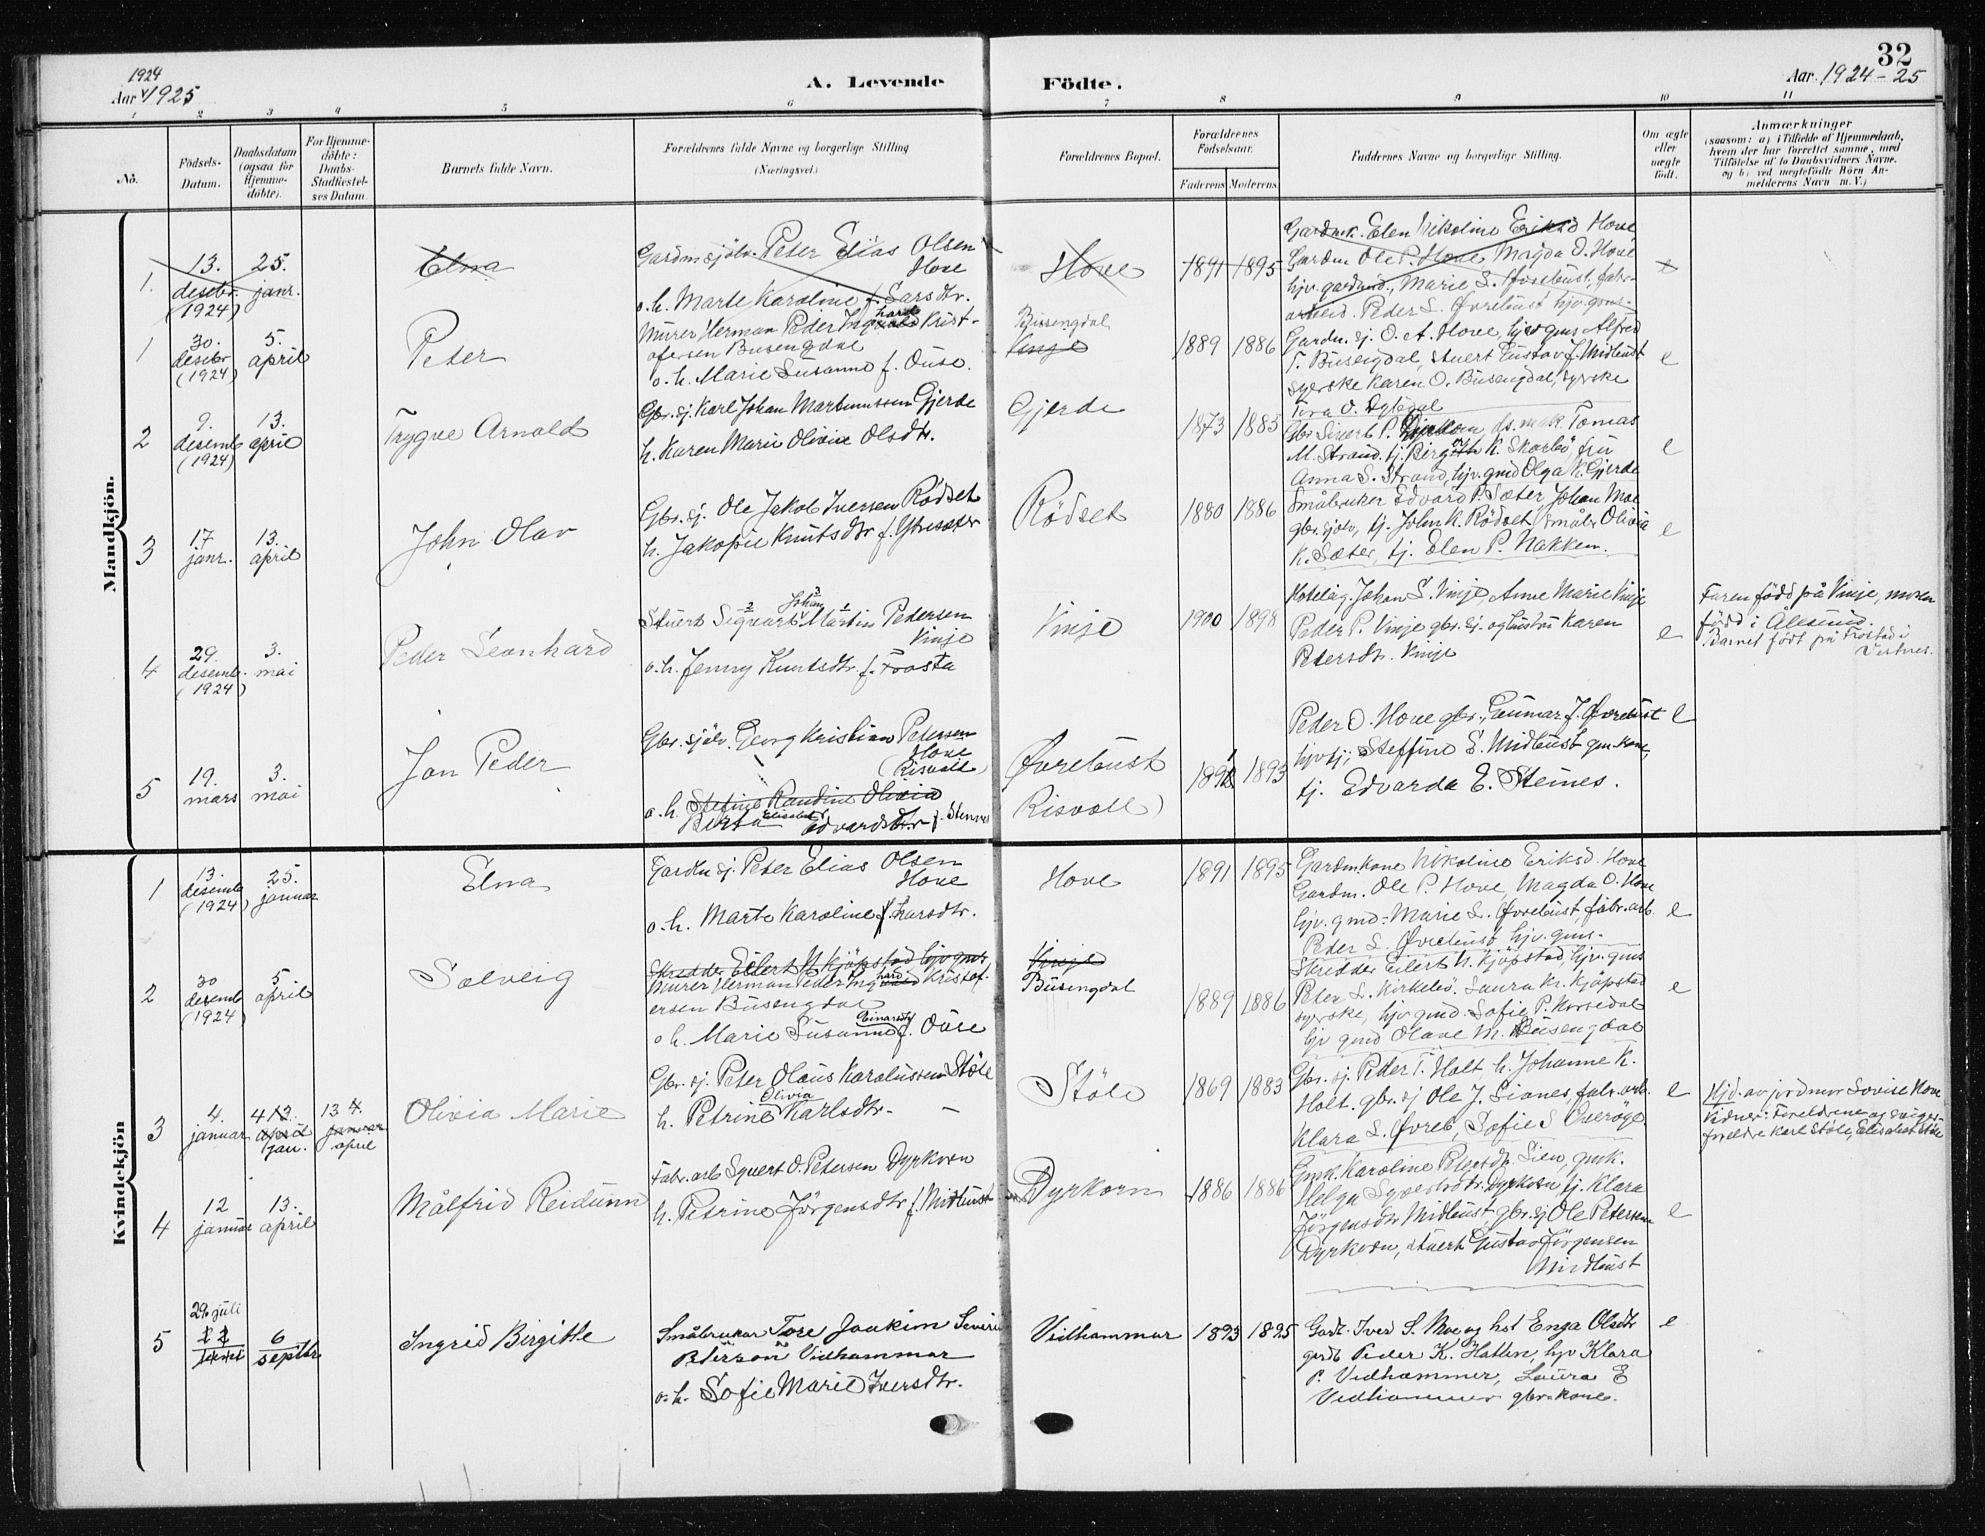 32
1924
Aar 1925
A. Levende
Födte.
Aar 1924-25
1 2 3 4 5 6 7 8 9 10 11
No.
Födsels-
Datum.
Daabsdatum
(ogsaa for
Hjemme-
döbte).
For Hjemme-
döbte:
Daabs-
Stadfæstel-
ses Datum.
Barnets fulde Navn.
Forældrenes fulde Navne og borgerlige Stilling
(Næringsvei.)
Forældrenes Bopæl.
Forældrenes
Födselsaar.
Faderens Moderens.
Faddernes Navne og borgerlige Stilling.
Om ægte
eller
uægte
født.
Anmærkninger
(saasom: a) i Tilfælde af Hjemmedaab,
hvem der har forrettet samme, med
Tilföielse af to Daabsvidners Navne,
og b) ved uægtefödte Börn An-
melderens Navn m. V.)
Mandkjön.
1.
13.
desebr.
(1924)
25.
janr.
Elna
Gardm sjölv. Peter Elias Olsen
Hove
o. h. Marte Karoline f. Larsdtr.
Hove
1891 1895
Gardmk. Elen Nikoline Eriksd Hove
Gardm Ole P. Hove Magda O. Hove
hjv. gardmd., Marie L. Øvrebust, fabr-
arbeid. Peder L. Øvrebust hjv. gms-
e
1
30.
desebr
(1924)
5.
april
Peter
Murer Herman Peder Ingvald Krist-
hard
ofersen Busengdal
o. h. Marie Susanne f. Ouse.
Busengdal
Vinje
1889 1886
Gardm. sj. O. A. Hove, hjv gms Alfred
T. Busengdal, stuert Gustav J. Midtbust
syerske Karen O. Busengdal, syrske
e
2
9.
desemb
(1924)
13.
april
Trygve Arnold
Gbr. sj. Karl Johan Martinussen Gjerde
h. Karen Marie Olivie Olsdtr.
Gjerde
1873 1885
Gbr Sivert P. Dyrkorn, ds. mek. Tomas
M. Strand, tj. Birgith K. Skorbø, fru
Anna S. Strand, hjv. gmd Olga K. Gjerde
e
3
17
janr.
13.
april
John Olav
Gbr. sj. Ole Jakob Iversen Rödset
h. Jakopie Knutsdtr f. Ytresæter
Rödset
1880 1886
Småbruker Edvard P. Sæter Johan Moe
gbr. sjølv, tj. John K. Rödset, småbr Olivia
K. Sæter, tj. Elen P. Nakken.
e
4
29.
desemb.
(1924)
3.
mai
Peder Leonhard
Stuert Sigvart Martin Pedersen
Johan
Vinje
o. h. Jenny Knutsdtr. f. Frosta
Vinje
1900 1898
Hotelåg. Johan S. Vinje, Anne Marie Vinje
Peder P. Vinje gbr. sj. og hustru Karen
Petersdtr. Vinje
e
Faren född på Vinje, moren
född i Ålesund.
Barnet født på Frostad i
Vestnes.
5
19.
mars
3.
mai
Jan Peder
Gbr. sjølv. Georg Kristian Petersen
Hove
(Risvold)
o. h. Stefine Randine Olivia
Berta Elisabet Edvardsdtr f. Stenes
Øvrebust
Risvoll)
1891 1893
Peder O. Hove gbr., Gunnar J. Øvrebust
hjv tj, Steffine S. Midtbust gm. kone,
tj. Edvarda E. Steines.
e
Kvindekjön
1
13.
desemb
(1924)
25.
januar
Elna
Gardm sj. Peter Elias Olsen
Hove
o. h. Marte Karoline f. Larsdtr.
Hove
1891 1895
Gardmkone Nikoline Eriksd. Hove
Gardm. Ole P. Hove, Magda O. Hove
hjv. gmd- Marie L. Øvrebust, fabr. arb.
Peder L. Øvrebust, hjv. gms-
e
2
30
desemb
(1924)
5
april
Solveig
Skredder Eilert N Kjöpstad hjv gms
Murer Herman Peder Ingvald Kristof-
hard
ersen Busengdal
o h. Marie Susanne Einarsdtr f. Ouse
Vinje
Busengdal
1889 1886
Skredder Eilert N. Kjöpstad, hjv. gms
Peter L. Kirkebö. Laura Kr. Kjöpstad
syerske, hjv. gmd. Sofie P. Korsedal
hjv gmd Olave M. Busengdal
e
3
4.
januar
4 13.
april
Jan.
13 4.
januar
april
Olivia Marie
Gbr. sj. Peter Olaus Karolussen Stöle
h. Petrine Olivia Karlsdtr. –
Stöle
1869 1883
Gbr. sj. Peder T. Holt h. Johanne K.
Holt. gbr. sj Ole J. Lianes, fabr. arb.
Klara L. Øvreb, Sofie S Overøye.
e
Hjd. av jordmor Lovise Hove
Vidner: Foreldrene og sviger-
foreldre Karl Stöle, Elisabet Stöle
4
12
januar
13.
april
Målfrid Reidunn
Fabr. arb Syvert O. Petersen Dyrkorn
h. Petrine Jörgensdtr f. Midtbust
Dyrkorn
1886 1886
Gmk. Karoline Petersdtr. Lien, gmk.
Helga Syvertsdtr. Dyrkorn tj. Klara
Jörgensdtr Midtbust, gbr. sj Ole Petersen
Dyrkorn, stuert Gustav Jörgensen
Midtbust
e
5
29. juli
6
septbr
Ingrid Birgitte
Småbrukar Tore Joakim Severin
Peterson Vidhammar
o. h. Sofie Marie Iversdtr.
Vidhammar
1893 1895
Gardt. Iver S. Moe og hst Enga Olsdtr
gardt Peder K. Hatlen, hjv Klara
P. Vidhammer, Laura E
Vidhammer gbr. kone.
e